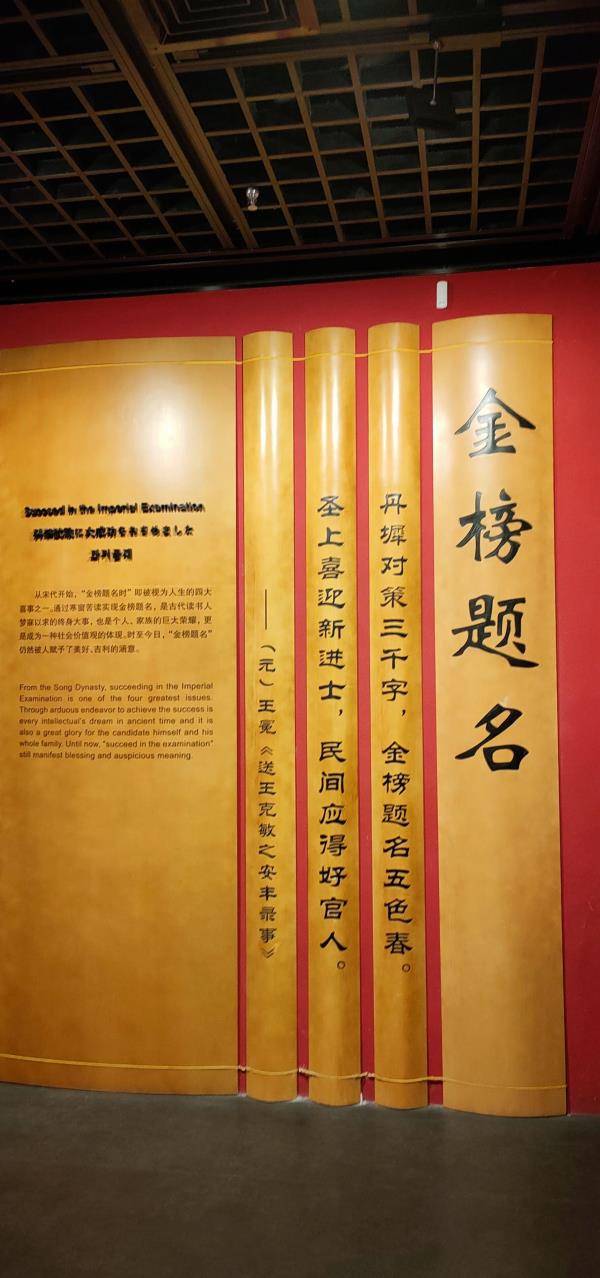 金榜题名
丹墀对策三千字，金榜题名五色春。
圣上喜迎新进士，民间应得好官人。
——（元）王冕《送王克敏之安丰录事》
Succeed in the Imperial Examination
に大成功をおさめました
从宋代开始，“金榜题名时”即被视为人生的四大
喜事之一。通过寒窗苦读实现金榜题名，是古代读书人
梦寐以求的终身大事，也是个人、家族的巨大荣耀，更
是成为一种社会价值观的体现。时至今日，“金榜题名”
仍然被人赋予了美好、吉利的涵意。
From the Song Dynasty, succeeding in the Imperial
Examination is one of the four greatest issues.
Through arduous endeavor to achieve the success is
every intellectual's dream in ancient time and it is
also a great glory for the candidate himself and his
whole family. Until now, "succeed in the examination"
still manifest blessing and auspicious meaning.